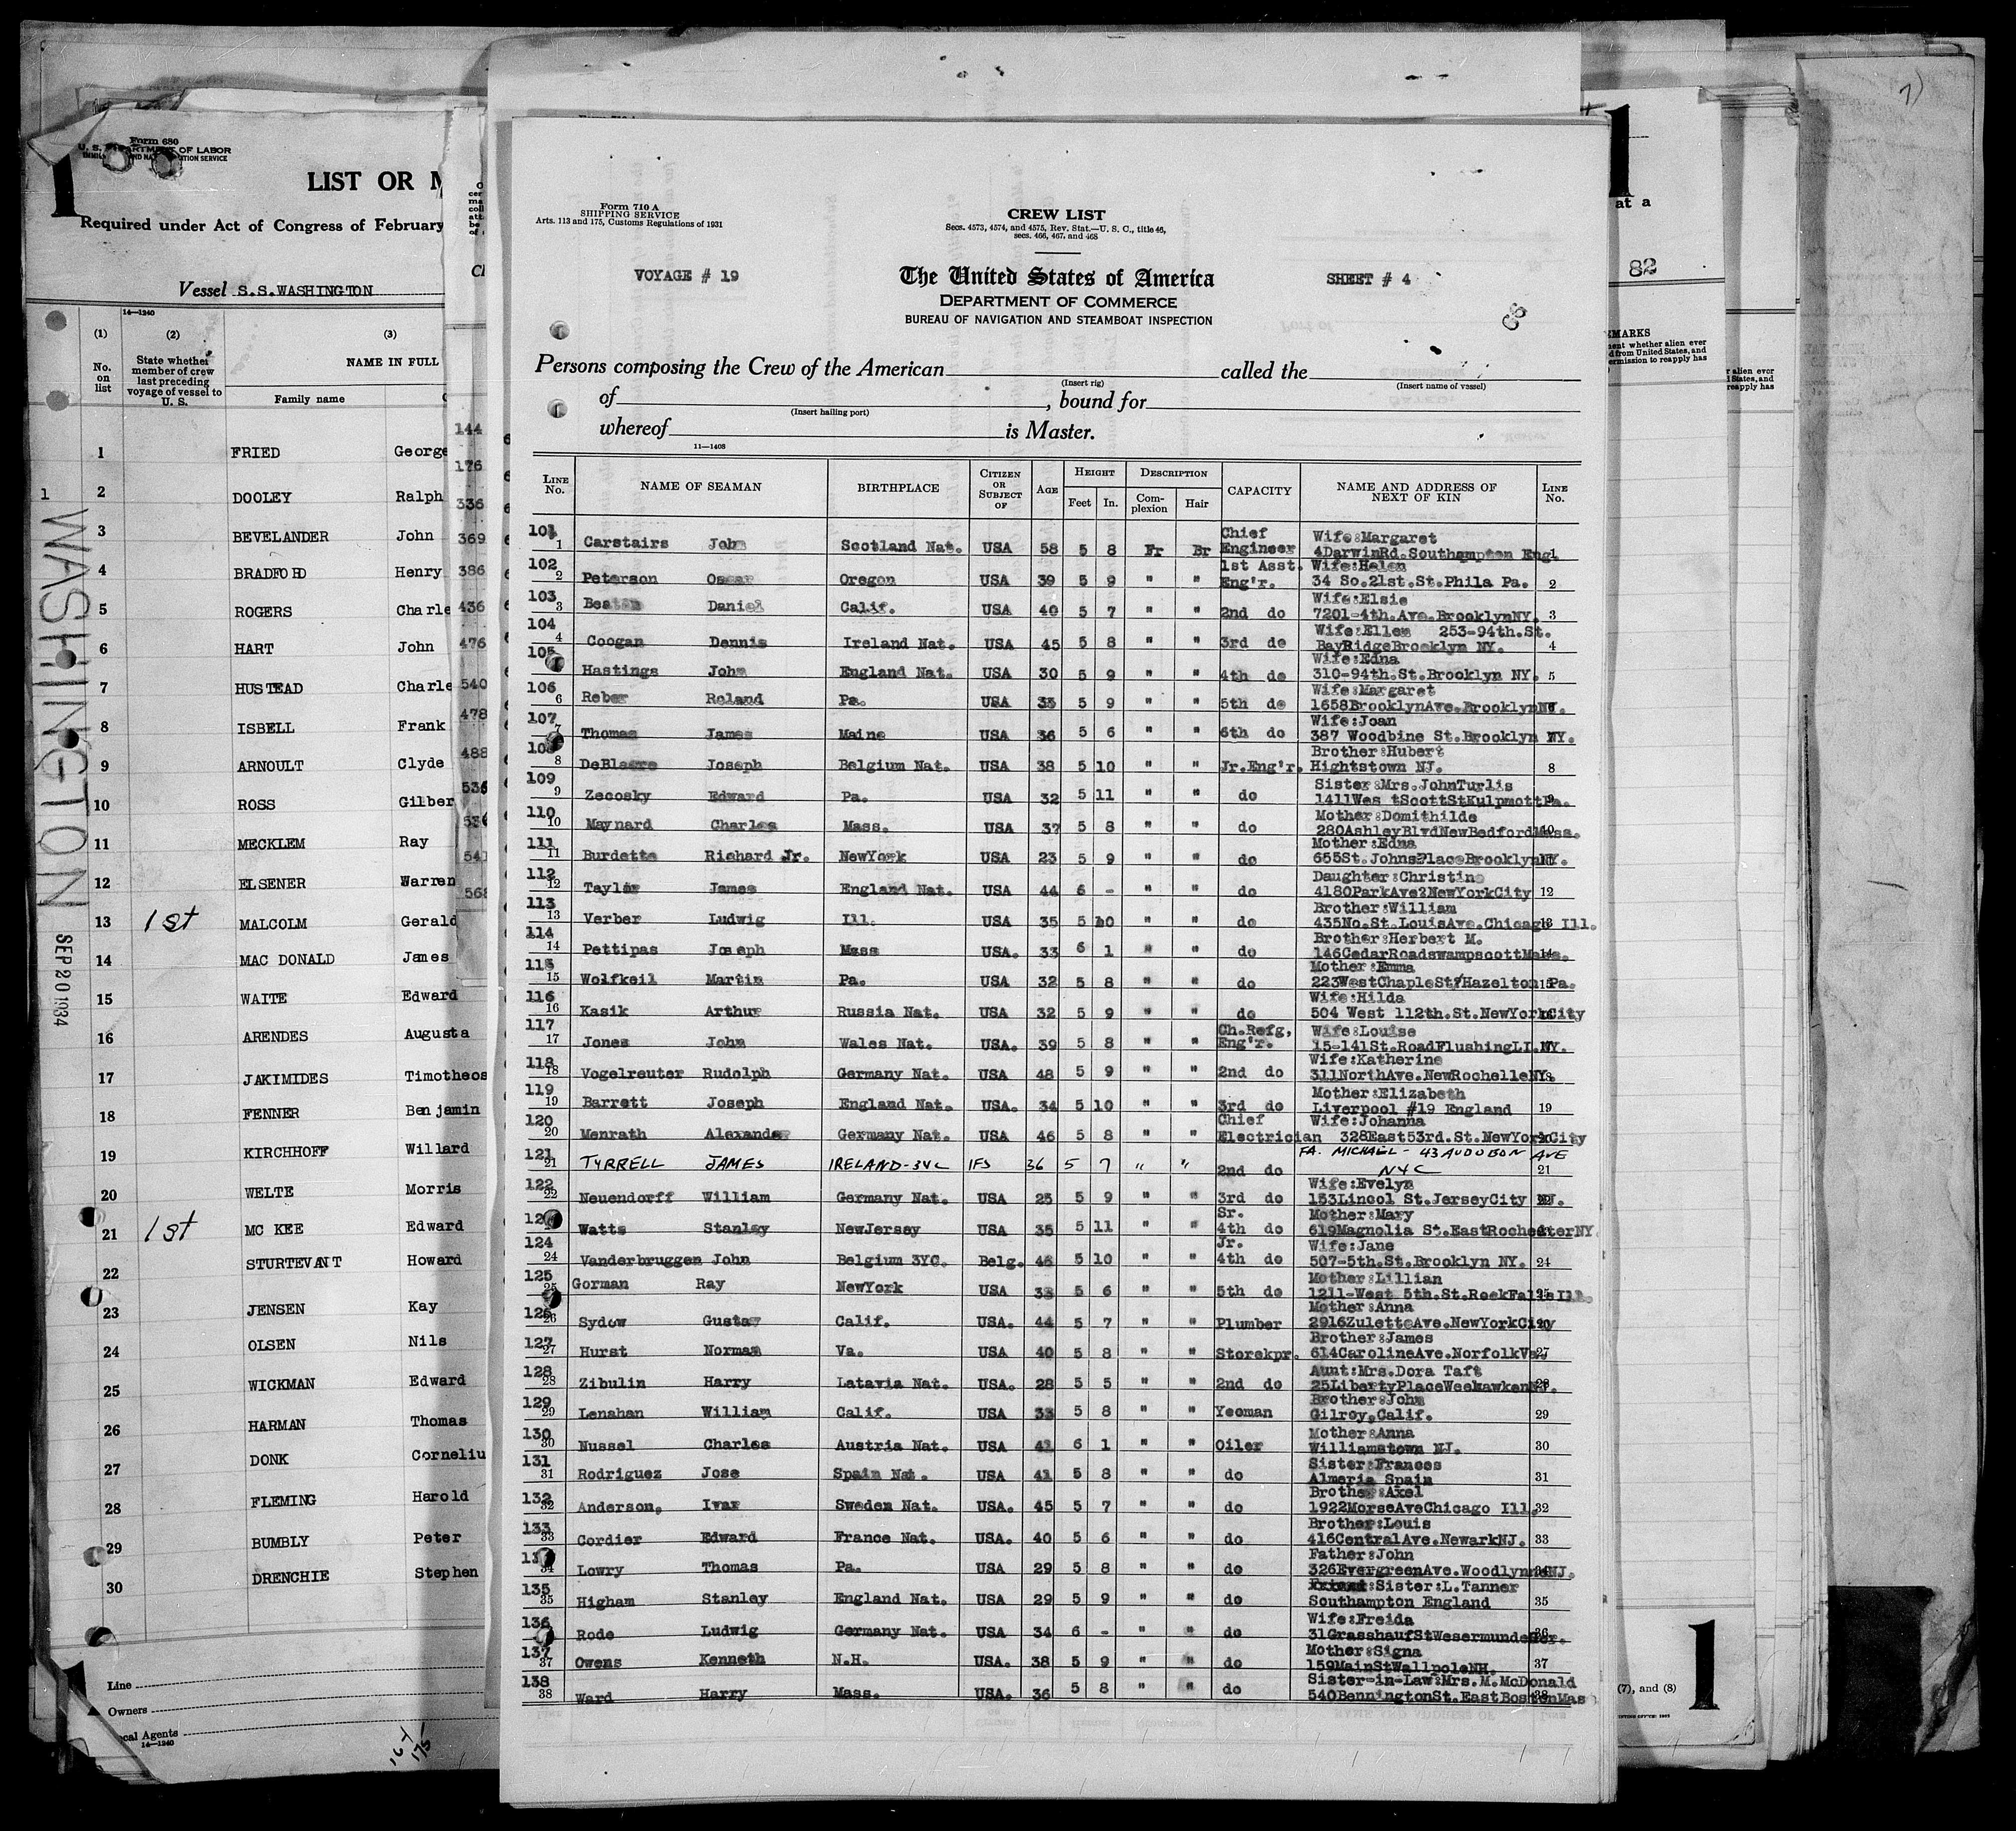 7)
Form 680
U. S. DEPARTMENT OF LABOR
LIST OR M
Required under Act of Congress of February
Vessel S.S.WASHINGTON
14—1240
(1) (2) (3)
No. on list
State whether member of crew last preceding voyage of vessel to U. S.
NAME IN FULL
Family name
1 FRIED George
1 2 DOOLEY Ralph
3 BEVELANDER John
4 BRADFORD Henry
5 ROGERS Charle
6 HART John
7 HUSTEAD Charle
8 ISBELL Frank
9 ARNOULT Clyde
10 ROSS Gilber
11 MECKLEM Ray
12 ELSENER Warren
13 1st MALCOLM Gerald
14 MAC DONALD James
15 WAITE Edward
16 ARENDES Augusta
17 JAKIMIDES Timotheos
18 FENNER Benjamin
19 KIRCHHOFF Willard
20 WELTE Morris
21 1st MC KEE Edward
22 STURTEVANT Howard
23 JENSEN Kay
24 OLSEN Nils
25 WICKMAN Edward
26 HARMAN Thomas
27 DONK Corneliu
28 FLEMING Harold
29 BUMBLY Peter
30 DRENCHIE Stephen
WASHINGTON
SEP 20 1934
Line
Owners
cal Agents
14—1240
144
176
336
369
386
436
476
540
478
488
536
541
568
Form 710 A
SHIPPING SERVICE
Arts. 113 and 175, Customs Regulations of 1931
CREW LIST
Secs. 4573, 4574, and 4575, Rev. Stat.—U. S. C., title 46,
secs. 466, 467, and 468
VOYAGE # 19
The United States of America
SHEET # 4
DEPARTMENT OF COMMERCE
BUREAU OF NAVIGATION AND STEAMBOAT INSPECTION
Persons composing the Crew of the American called the
(Insert rig) (Insert name of vessel)
of , bound for
(Insert hailing port)
whereof is Master.
11—1408
LINE No. NAME OF SEAMAN BIRTHPLACE CITIZEN OR SUBJECT OF AGE HEIGHT Feet In. DESCRIPTION Complexion Hair CAPACITY NAME AND ADDRESS OF NEXT OF KIN LINE No.
101 1 Carstairs John Scotland Nat. USA 58 5 8 Fr Br Chief Engineer Wife:Margaret 4DarwinRd.Southampton Engl 1
102 2 Peterson Oscar Oregon USA 39 5 9 " " 1st Asst. Eng'r. Wife:Helen 34 So.21st.St.Phila Pa. 2
103 3 Daniel Calif. USA 40 5 7 " " 2nd do Wife:Elsie 7201-4th.Ave.BrooklynNY. 3
104 4 Coogan Dennis Ireland Nat. USA 45 5 8 " " 3rd do Wife:Ellen 253-94th.St. BayRidgeBrooklyn NY. 4
105 Hastings John England Nat. USA 30 5 9 " " 4th do Wife:Edna 310-94th.St.Brooklyn NY. 5
106 6 Reber Roland Pa. USA 33 5 9 " " 5th do Wife:Margaret 1658BrooklynAve.BrooklynNY.
107 7 Thomas James Maine USA 36 5 6 " " 6th do Wife:Joan 387 Woodbine St.Brooklyn NY.
108 8 Joseph Belgium Nat. USA 38 5 10 " " Jr.Eng'r. Brother:Hubert Hightstown NJ. 8
109 9 Zecosky Edward Pa. USA 32 5 11 " " do Sister:Mrs.JohnTurlis 1411Wes tScottStKulpmottPa. 9
110 10 Maynard Charles Mass. USA 37 5 8 " " do Mother:Domithilde 280AshleyBlvdNewBedfordMass. 10
111 11 Burdette Richard Jr. NewYork USA 23 5 9 " " do Mother:Edna 655St.JohnsPlaceBrooklynNY.
112 12 Taylor James England Nat. USA 44 6 - " " do Daughter:Christine 4180ParkAve?NewYorkCity 12
113 13 Verber Ludwig Ill. USA 35 5 10 " " do Brother:William 435No.St.LouisAve.Chicago Ill. 13
114 14 Pettipas Joseph Mass USA. 33 6 1 " " do Brother:Herbert M. 146CedarRoadswampscottMass. 14
115 15 Wolfkeil Martin Pa. USA 32 5 8 " " do Mother:Emma 223WestChapleSt/Hazelton Pa. 15
116 16 Kasik Arthur Russia Nat. USA 32 5 9 " " do Wife:Hilda 504 West 112th.St.NewYorkCity
117 17 Jones John Wales Nat. USA. 39 5 8 " " Ch.Refg, Eng'r. Wife:Louise 15-141St.RoadFlushingLI.NY.
118 18 Vogelreuter Rudolph Germany Nat. USA 48 5 9 " " 2nd do Wife:Katherine 311NorthAve.NewRochelleNY.
119 19 Barrett Joseph England Nat. USA. 34 5 10 " " 3rd do Mother:Elizabeth Liverpool #19 England 19
120 20 Menrath Alexander Germany Nat. USA 46 5 8 " " Chief Electrician Wife:Johanna 328East53rd.St.NewYorkCity
121 21 TYRRELL JAMES IRELAND-3YC IFS 36 5 7 " " 2nd do FA. MICHAEL - 43 AUDOBON AVE NYC 21
122 22 Neuendorff William Germany Nat. USA 25 5 9 " " 3rd do Wife:Evelyn 153Lincol St.JerseyCity NJ.
Watts Stanley NewJersey USA 35 5 11 " " Sr. 4th do Mother:Mary 619Magnolia St.EastRochesterNY
124 24 Vanderbruggen John Belgium 3YC. Belg. 46 5 10 " " Jr. 4th do Wife:Jane 507-5th.St.Brooklyn NY. 24
125 25 Gorman Ray NewYork USA 33 5 6 " " 5th do Mother:Lillian 1211-West 5th.St.RockFalls Ill.
126 26 Sydow Gustav Calif. USA. 44 5 7 " " Plumber Mother:Anna 2916ZuletteAve.NewYorkCity
127 27 Hurst Norman Va. USA 40 5 8 " " Storekpr. Brother:James 614CarolineAve.NorfolkVa. 27
128 28 Zibulin Harry Latavia Nat. USA. 28 5 5 " " 2nd do Aunt:Mrs.Dora Taft 25LibertyPlaceWeehawkenNJ. 28
129 29 Lenahan William Calif. USA 33 5 8 " " Yeoman Brother:John Gilroy,Calif. 29
130 30 Nussel Charles Austria Nat. USA 41 6 1 " " Oiler Mother:Anna Williamstown NJ. 30
131 31 Rodriguez Jose Spain Nat. USA 41 5 8 " " do Sister:Frances Almeria Spain 31
132 32 Anderson, Ivar Sweden Nat. USA. 45 5 7 " " do Brother:Axel 1922MorseAveChicago Ill. 32
133 33 Cordier Edward France Nat. USA. 40 5 6 " " do Brother:Louis 416CentralAve.NewarkNJ. 33
34 Lowry Thomas Pa. USA 29 5 8 " " do Father:John 326EvergreenAve.WoodlynneNJ.
135 35 Higham Stanley England Nat. USA 29 5 9 " " do :Sister:L.Tanner Southampton England 35
136 Rode Ludwig Germany Nat. USA 34 6 - " " do Wife:Freida 31GrasshaufStWesermundeGer. 36
137 37 Owens Kenneth N.H. USA. 38 5 9 " " do Mother:Signa 159MainStWallpoleNH. 37
138 38 Ward Harry Mass. USA. 36 5 8 " " do Sister-in-Law:Mrs.M.McDonald 540BenningtonSt.EastBostonMas 38
1
at a
82
EMARKS
(7), and (8)
1